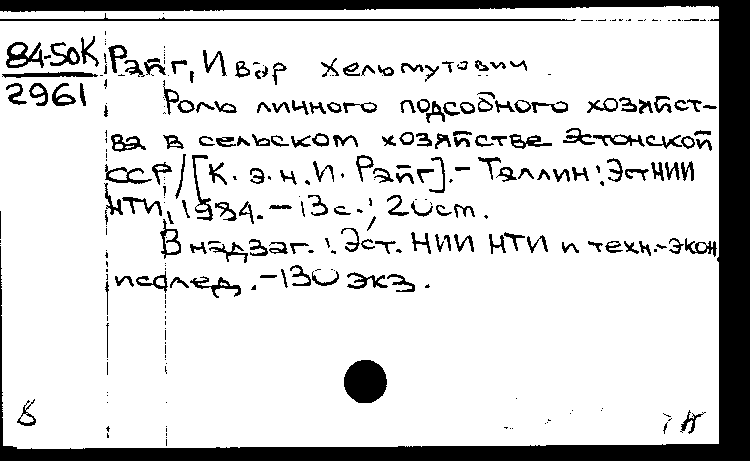 84-50К
2961
Райг, Ивар Хельмутович
Роль личного подсобного хозяйст-
ва в сельском хозяйстве Эстонской
ССР / [К. э. н. И. Райг]. - Таллин: ЭстНИИ
НТИ, 1984. - 13 с.; 20 см.
В надзаг.: Эст. НИИ НТИ и техн.-экон.
исслед. - 130 экз.